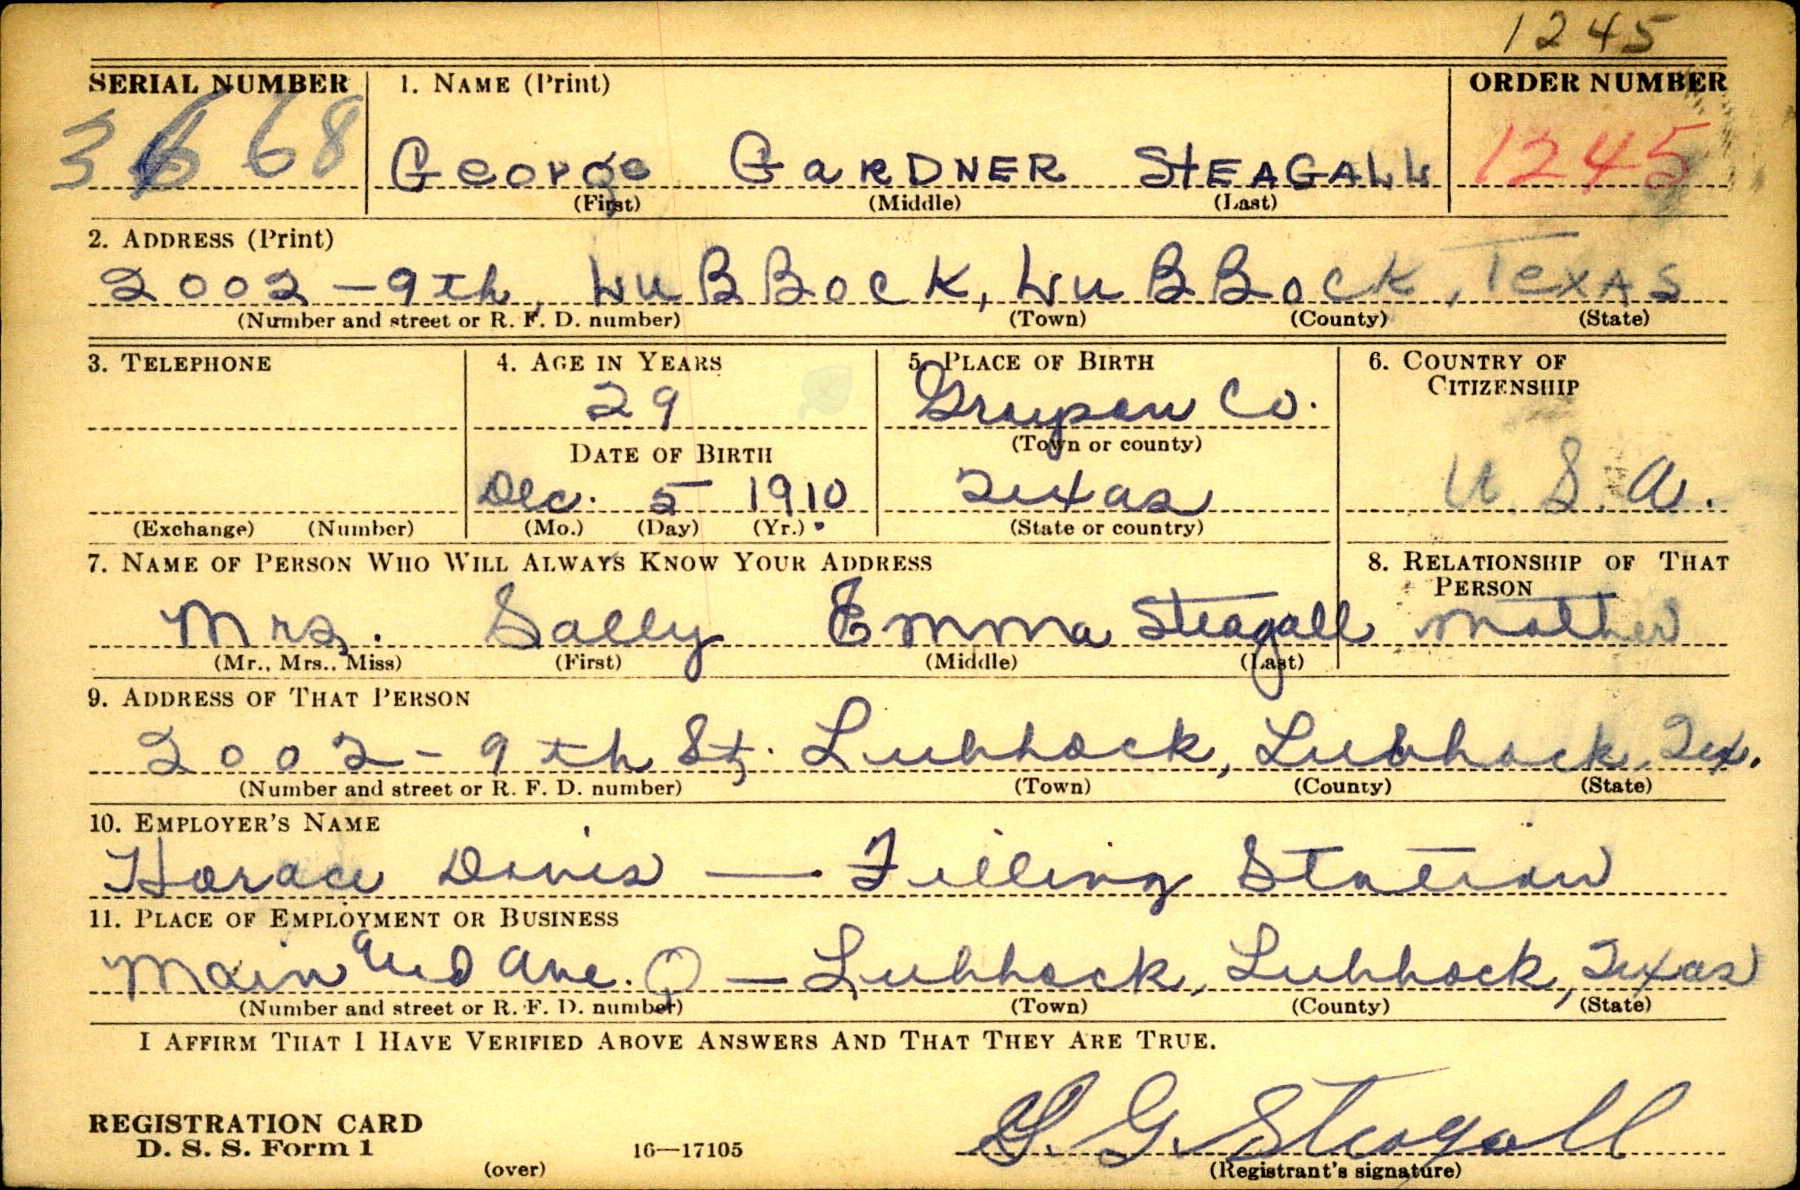 1245
SERIAL NUMBER 1. NAME (Print) ORDER NUMBER
3668 George GaRDNER STEAGALL 1245
(First) (Middle) (Last)
2. ADDRESS (Print)
2002 - 9th, LuBBocK, LuBBock, TexAS
(Number and street or R. F. D. number) (Town) (County) (State)
3. TELEPHONE 4. AGE IN YEARS 5. PLACE OF BIRTH 6. COUNTRY OF CITIZENSHIP
29 Grayson Co.
(Town or county)
DATE OF BIRTH
Dec. 5 1910 Texas U. S. A.
(Exchange) (Number) (Mo.) (Day) (Yr.) (State or country)
7. NAME OF PERSON WHO WILL ALWAYS KNOW YOUR ADDRESS 8. RELATIONSHIP OF THAT PERSON
Mrs. Sally Emma Steagall Mother
(Mr., Mrs., Miss) (First) (Middle) (Last)
9. ADDRESS OF THAT PERSON
2002 - 9th St. Lubbock, Lubbock, Tex.
(Number and street or R. F. D. number) (Town) (County) (State)
10. EMPLOYER'S NAME
Horace Davis — Filling Station
11. PLACE OF EMPLOYMENT OR BUSINESS
Main and Ave. Q — Lubbock, Lubbock, Texas
(Number and street or R. F. D. number) (Town) (County) (State)
I AFFIRM THAT I HAVE VERIFIED ABOVE ANSWERS AND THAT THEY ARE TRUE.
G. G. Steagall
REGISTRATION CARD
D. S. S. Form 1 16—17105
(over) (Registrant's signature)